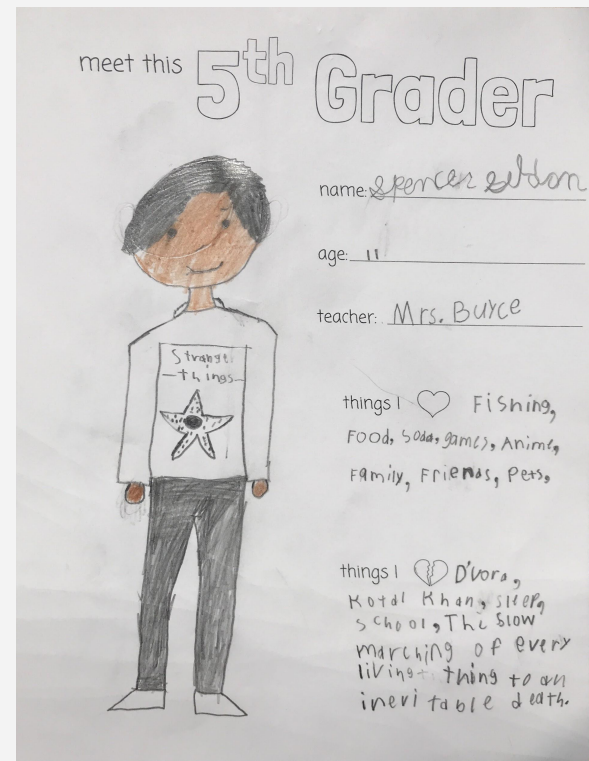 meet this 5th Grader
name: Spencer Seldon
age: 11
teacher: Mrs. Burce
Strange
things
things I Fishing,
Food, Soda, games, Anime,
Family, Friends, Pets,
things I D'vora,
Kotal Khan, sleep,
School, The Slow
marching of every
living thing to an
inevitable death.